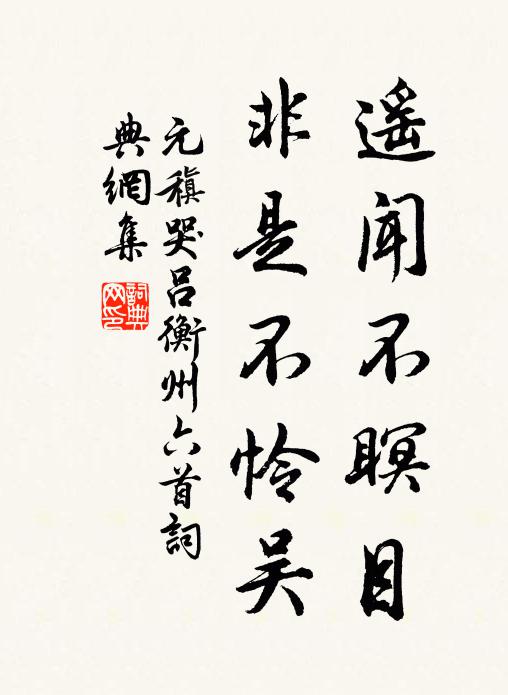 遥闻不瞑目
非是不怜吴
元稹哭吕衡州六首詞
典網集
詞典网印